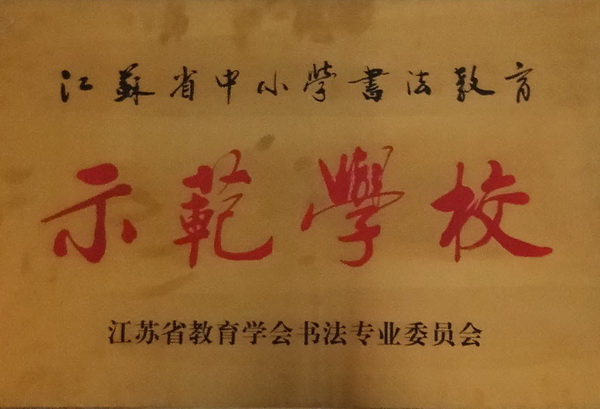 江蘇省中小學書法教育
示範學校
江苏省教育学会书法专业委员会